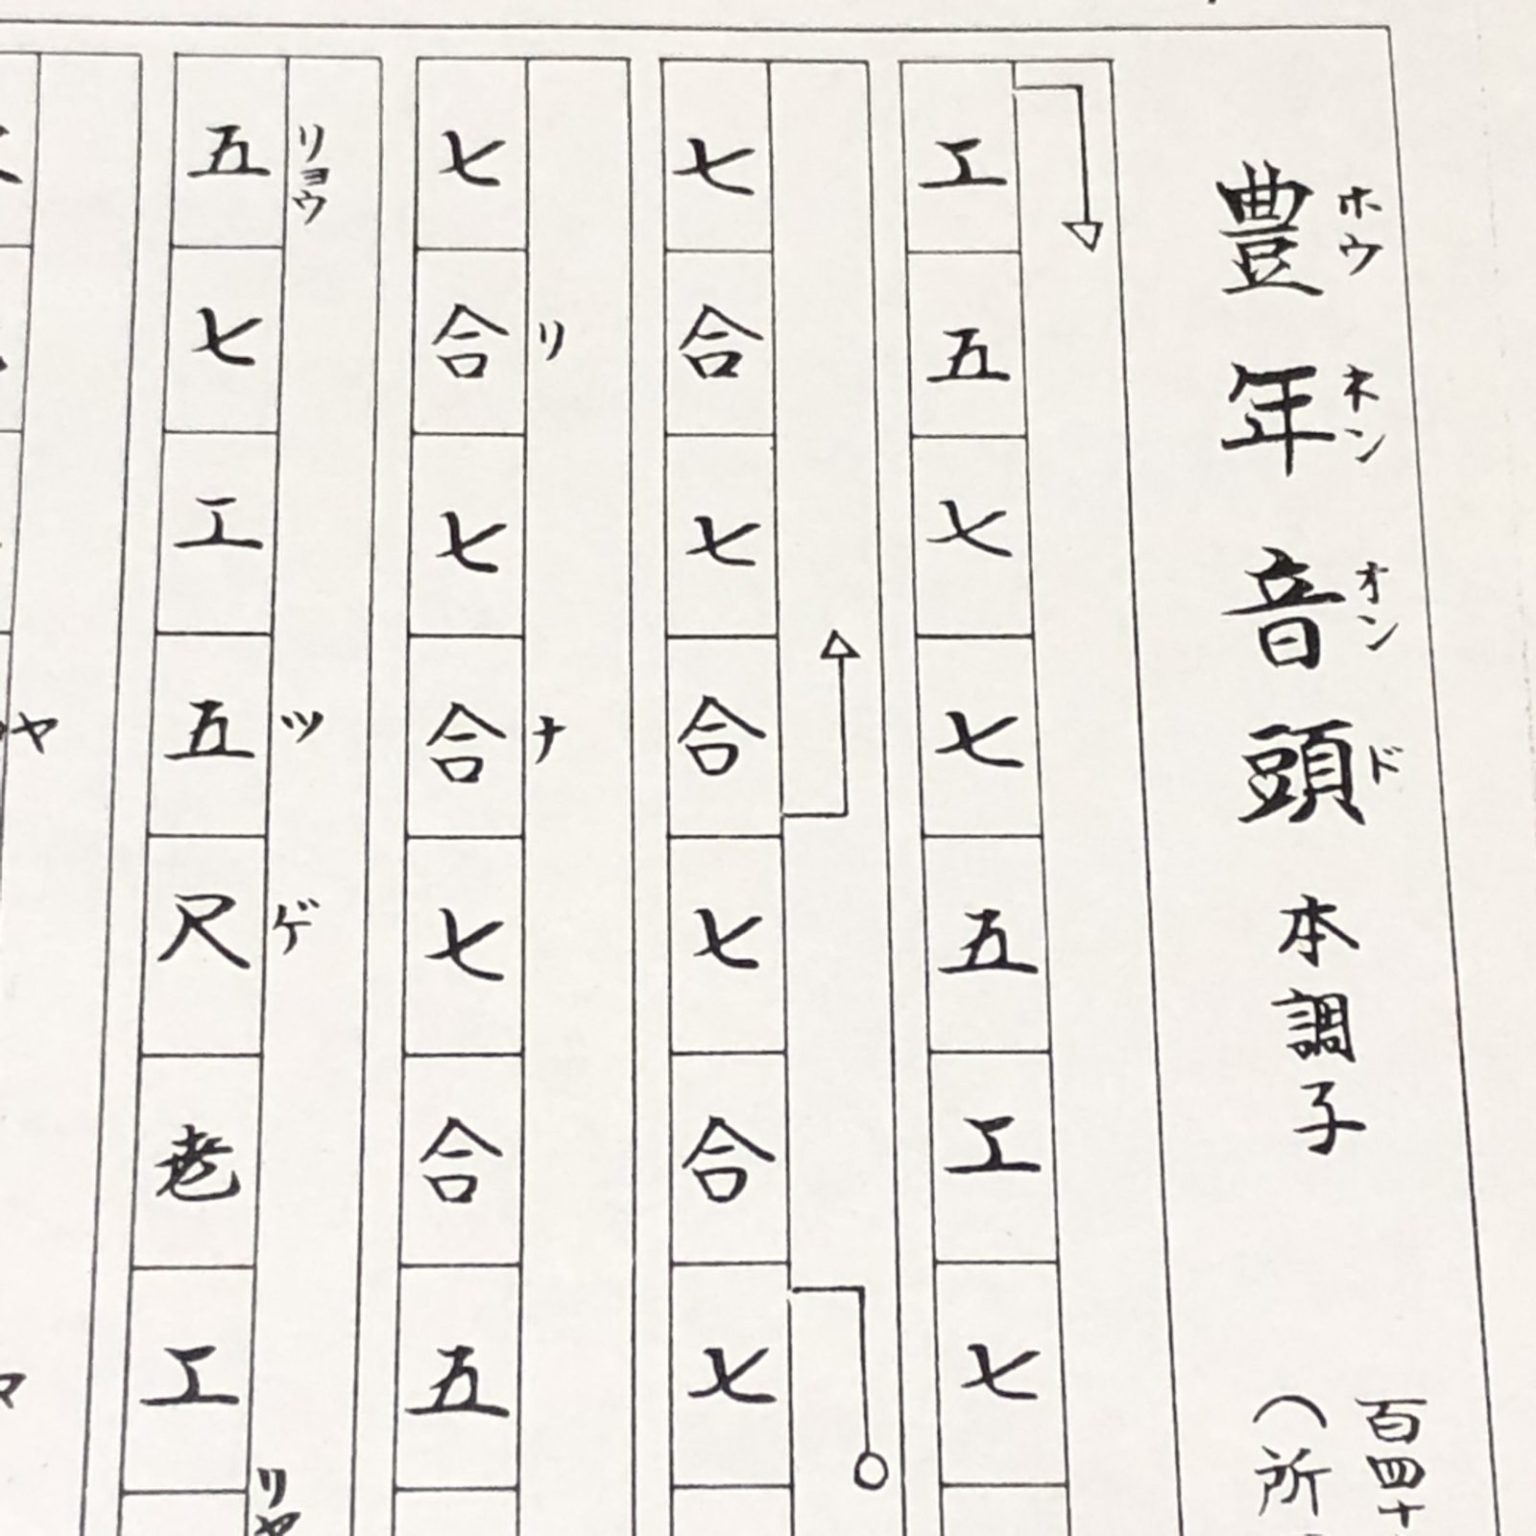 豊年音頭 本調子
ホウネンオンド
百四十
(所
工五七七五工七
七合七合七合七
七合七合七合五
リナ
五七工五尺老工
リョウツゲリヤ
ヤ
マ